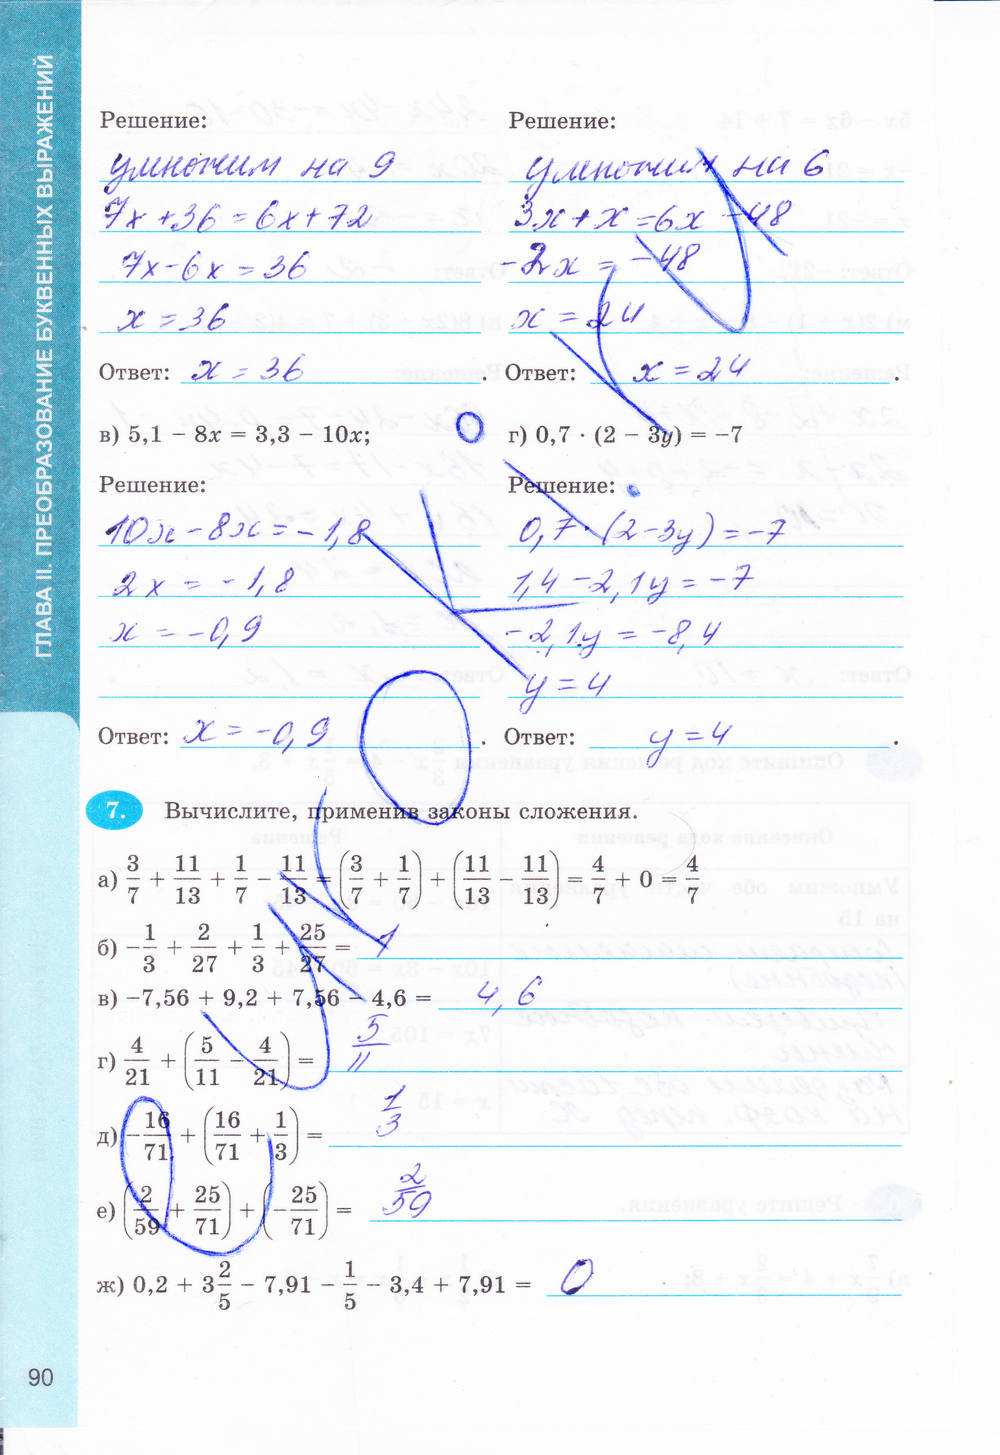 ГЛАВА II. ПРЕОБРАЗОВАНИЕ БУКВЕННЫХ ВЫРАЖЕНИЙ
Решение:
умножим на 9
7x + 36 = 6x + 72
7x - 6x = 36
x = 36
Ответ: x = 36.
Решение:
умножим на 6
3x + x = 6x - 48
-2x = -48
x = 24
Ответ: x = 24.
в) 5,1 – 8x = 3,3 – 10x;
Решение:
10x - 8x = -1,8
2x = -1,8
x = -0,9
Ответ: x = -0,9.
г) 0,7 · (2 – 3y) = –7
Решение:
0,7 · (2 - 3y) = -7
1,4 - 2,1y = -7
-2,1y = -8,4
y = 4
Ответ: y = 4.
7. Вычислите, применив законы сложения.
а) 3/7 + 11/13 + 1/7 – 11/13 = (3/7 + 1/7) + (11/13 – 11/13) = 4/7 + 0 = 4/7
б) –1/3 + 2/27 + 1/3 + 25/27 = 1
в) –7,56 + 9,2 + 7,56 – 4,6 = 4,6
г) 4/21 + (5/11 – 4/21) = 5/11
д) –16/71 + (16/71 + 1/3) = 1/3
е) (2/59 + 25/71) + (–25/71) = 2/59
ж) 0,2 + 3 2/5 – 7,91 – 1/5 – 3,4 + 7,91 = 0
90